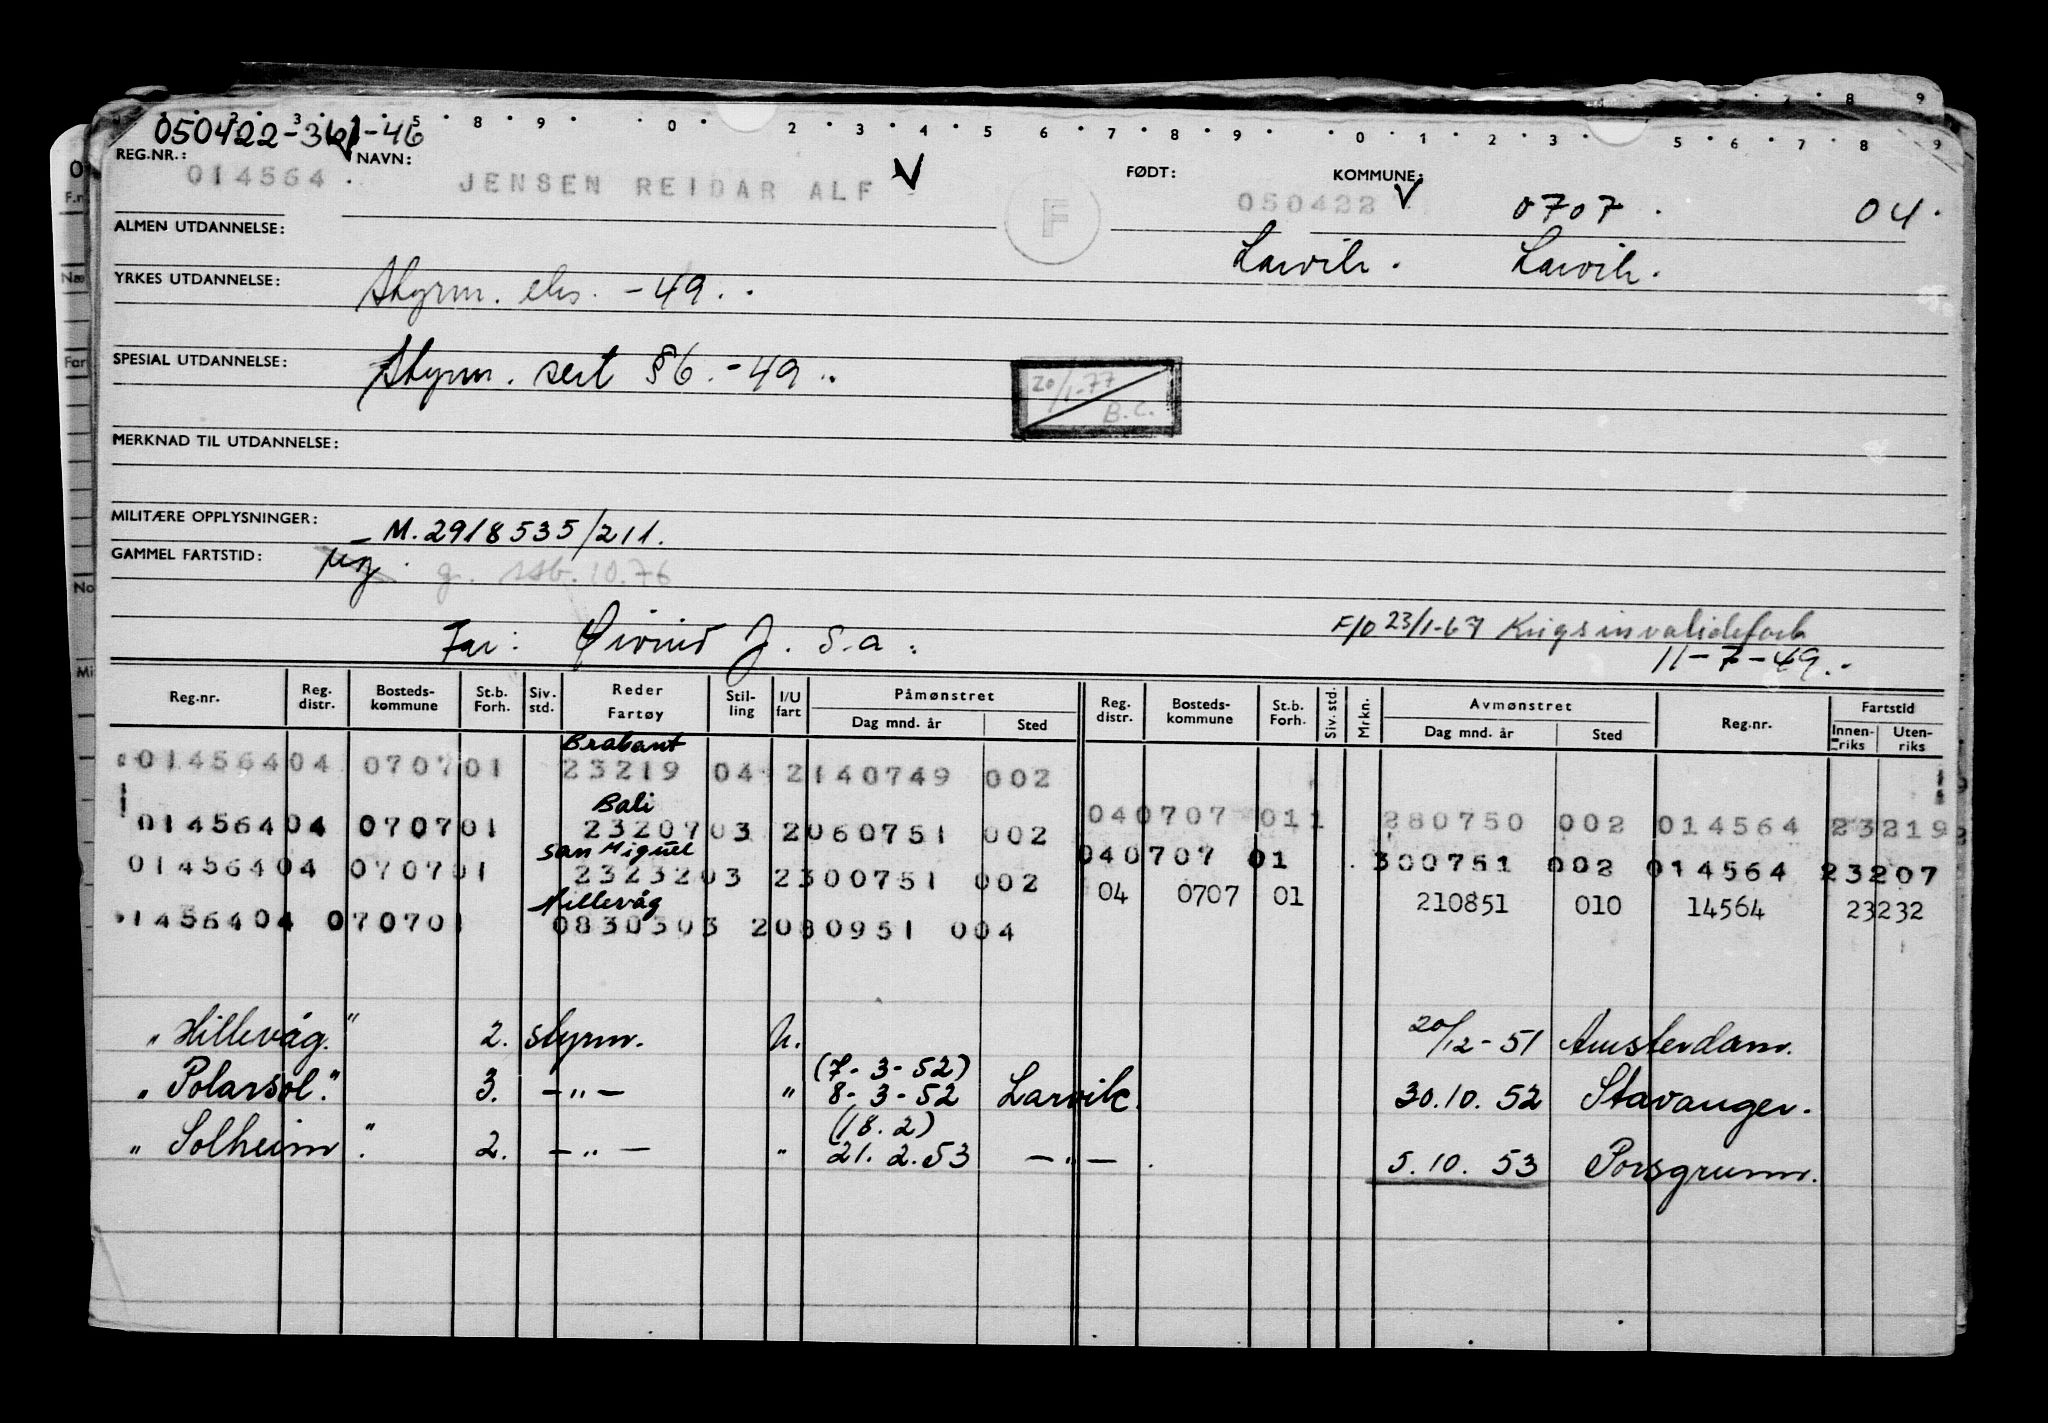 050422-361-46
REG.NR.: 014564. NAVN: JENSEN REIDAR ALF F FØDT: 050422 KOMMUNE: 0707. 04.
ALMEN UTDANNELSE: Larvik. Larvik.
YRKES UTDANNELSE: Styrm. eks. -49..
SPESIAL UTDANNELSE: Styrm. sert §6.-49..
20/1-77
B.C.
MERKNAD TIL UTDANNELSE:
MILITÆRE OPPLYSNINGER: M.2918535/211.
GAMMEL FARTSTID: g. ssb. 10.76
Far: Øivind J. s.a. F/O 23/1-67 Krigsinvalideforb
11-7-49..
Reg.nr. Reg. distr. Bosteds-kommune St.b. Forh. Siv. std. Reder Fartøy Stil-ling I/U fart Påmønstret Dag mnd. år Sted Reg. distr. Bosteds-kommune St.b. Forh. Siv. std. Mrkn. Avmønstret Dag mnd. år Sted Reg.nr. Fartstid Innen-riks Uten-riks
Brabant
014564 04 0707 01 23219 04 2 140749 002
Bali
014564 04 0707 01 23207 03 2 060751 002 04 0707 01 1 280750 002 014564 23219
San Miguel
014564 04 0707 01 23232 03 2 300751 002 04 0707 01 300751 002 014564 23207
Hillevåg 04 0707 01 210851 010 14564 23232
1456404 070701 08303 03 2 080951 004
"Hillevåg." 2. styrm. u. 20/12-51 Amsterdam.
(7-3-52)
"Polarsol." 3. -"- " 8-3-52 Larvik. 30.10.52 Stavanger.
(18.2)
"Solheim". 2. -"- " 21.2.53 -"-. 5.10.53 Porsgrunn.